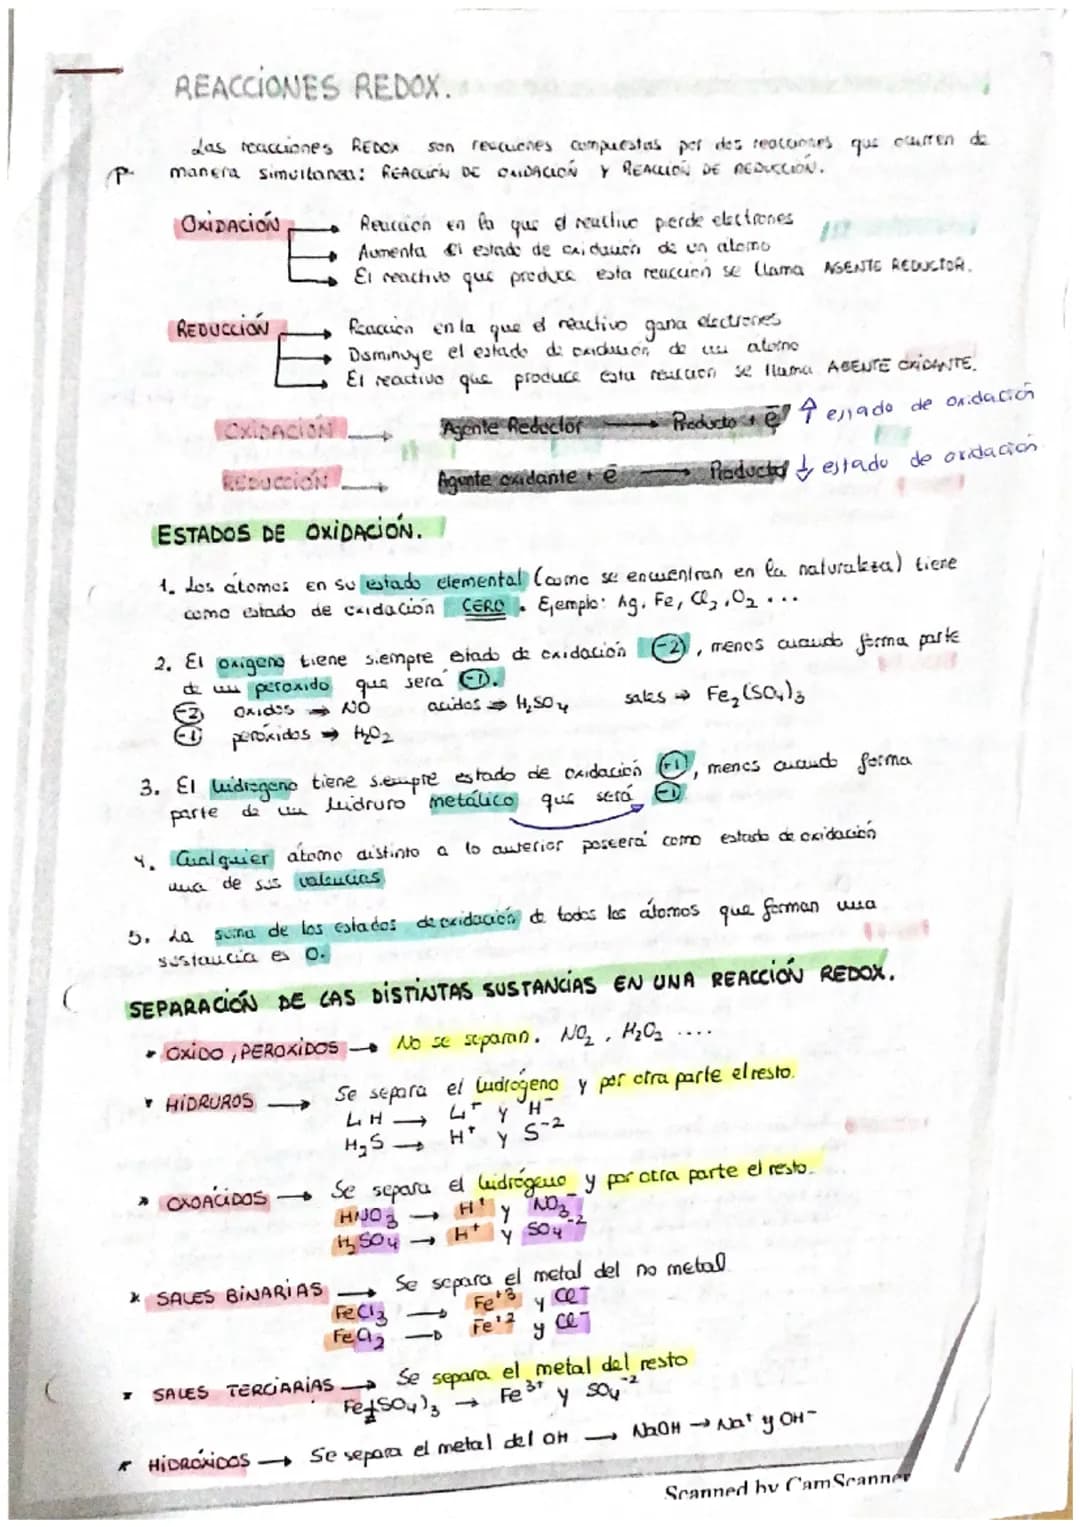 REACCIONES REDOX.
Las reacciones REDOX son reacciones compuestas por dos reacciones que ocurren de
manera simultanea: REACCIÓN DE OXIDACIÓN Y REACCIÓN DE REDUCCIÓN.
OXIDACIÓN → Reacción en la que el reactivo pierde electrones
→ Aumenta el estado de oxidación de un atomo
→ El reactivo que produce esta reacción se llama AGENTE REDUCTOR.
REDUCCIÓN → Reacción en la que el reactivo gana electrones
→ Disminuye el estado de oxidación de un atomo
→ El reactivo que produce esta reacción se llama AGENTE OXIDANTE.
OXIDACIÓN → Agente Reductor → Producto + ē ↑ estado de oxidación
REDUCCIÓN → Agente oxidante + ē → Producto ↓ estado de oxidación
ESTADOS DE OXIDACIÓN.
1. Los átomos en su estado elemental (como se encuentran en la naturaleza) tiene
como estado de oxidación CERO. Ejemplo: Ag, Fe, Cl₂, O₂ ...
2. El oxigeno tiene siempre estado de oxidación (-2), menos cuando forma parte
de un peroxido que será (-1).
(-2) oxidos → NO acidos → H₂SO₄ sales → Fe₂(SO₄)₃
(-1) peróxidos → H₂O₂
3. El hidrogeno tiene siempre estado de oxidación (+1), menos cuando forma
parte de un hidruro metálico que será (-1)
4. Cualquier átomo distinto a lo anterior poseerá como estado de oxidación
una de sus valencias
5. La suma de los estados de oxidación de todos los átomos que forman una
sustancia es 0.
SEPARACIÓN DE LAS DISTINTAS SUSTANCIAS EN UNA REACCIÓN REDOX.
• OXIDO, PEROXIDOS → No se separan. NO₂, H₂O₂ ....
HIDRUROS → Se separa el hidrógeno y por otra parte el resto.
LiH → Li⁺ y H⁻
H₂S → H⁺ y S⁻²
OXOÁCIDOS → Se separa el hidrógeno y por otra parte el resto.
HNO₃ → H⁺ y NO₃⁻
H₂SO₄ → H⁺ y SO₄⁻²
* SALES BINARIAS → Se separa el metal del no metal
FeCl₃ → Fe⁺³ y Cl⁻
FeCl₂ → Fe⁺² y Cl⁻
SALES TERCIARIAS → Se separa el metal del resto
Fe₂(SO₄)₃ → Fe³⁺ y SO₄⁻²
HIDRÓXIDOS → Se separa el metal del OH → NaOH → Na⁺ y OH⁻
Scanned by CamScanner